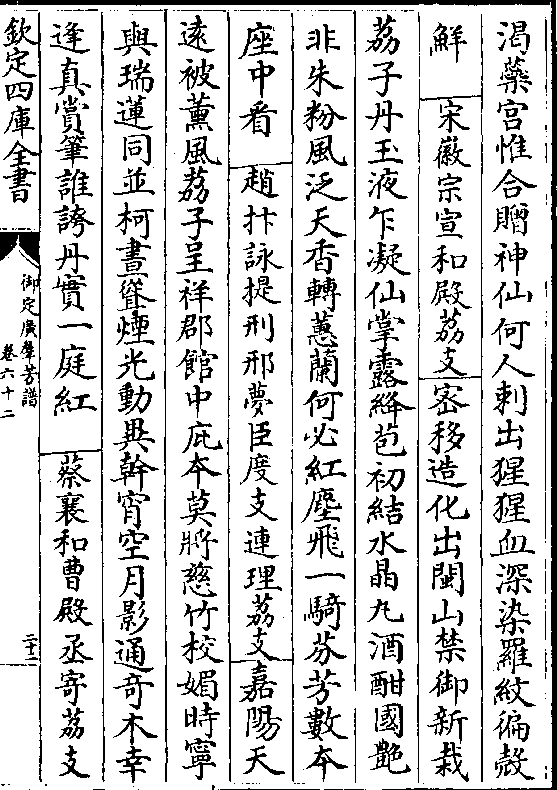 渴蘂宫惟合贈神仙何人刺出猩猩血深染羅紋徧殻
鮮　宋徽宗宣和殿荔支宻移造化出閩山禁御新栽
荔子丹玉液乍凝仙掌露絳苞初結水晶丸酒酣國艷
非朱粉風泛天香轉蕙蘭何必紅塵飛一騎芬芳數本
座中看　趙抃詠提刑邢夢臣度支連理荔支嘉陽天
逺被薰風荔子呈祥郡館中庇本莫將慈竹校媚時寧
與瑞蓮同並柯晝聳煙光動異幹宵空月影通竒木幸
逢真賞筆誰誇丹實一庭紅　蔡襄和曹殿丞寄荔支
欽定四庫全書
御定廣羣芳譜
卷六十二
二十二